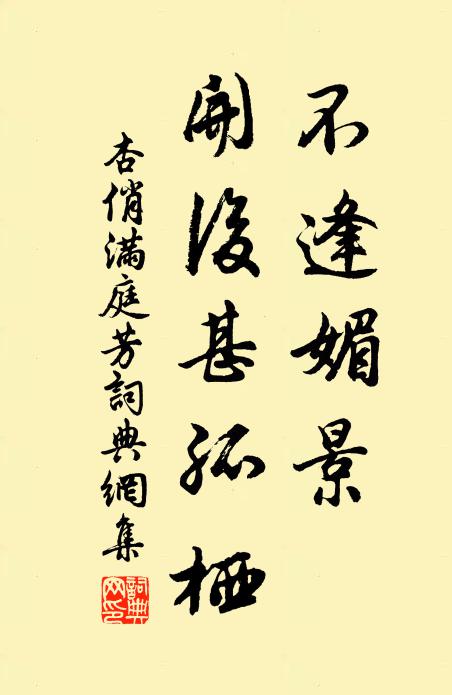 不逢媚景
開後甚孤栖
杏俏滿庭芳詞典網集
詞典网印